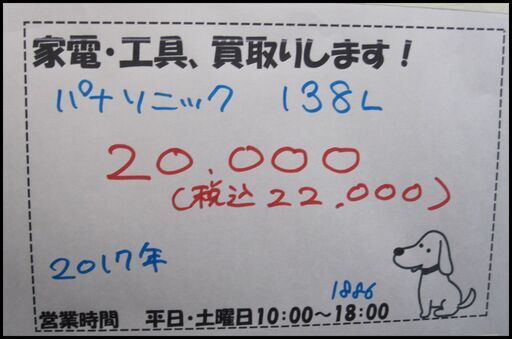 家電・工具、買取りします！
パナソニック 138L
20.000
(税込 22.000)
2017年
1886
営業時間 平日・土曜日10:00～18:00